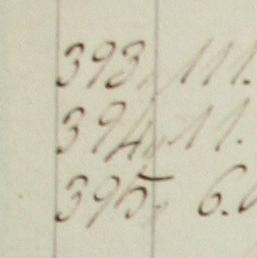 393. 111.
394. 11.
395. 6.